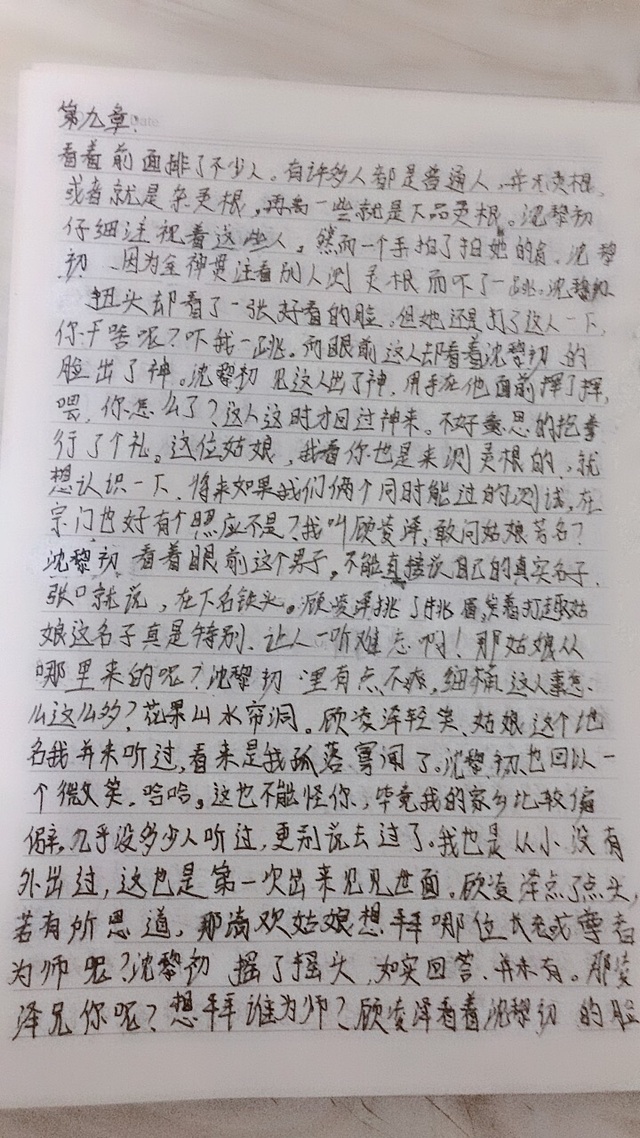 第九章:
Date
看着前面排了不少人。有许多人都是普通人,并无灵根,
或者就是杂灵根,再高一些就是下品灵根。沈黎初
仔细注视着这些人。然而一个手拍了拍她的肩,沈黎
初、因为全神贯注看别人测灵根而吓了一跳,沈黎初
扭头却看了一张好看的脸,但她还是打了这人一下,
你干啥呢?吓我一跳。而眼前这人却看着沈黎初的
脸出了神。沈黎初见这人出了神,用手在他面前挥了挥,
喂,你怎么了?这人这时才回过神来。不好意思的抱拳
行了个礼。这位姑娘,我看你也是来测灵根的,就
想认识一下,将来如果我们俩个同时能过的测试,在
宗门也好有个照应不是?我叫顾凌泽,敢问姑娘芳名?
沈黎初看着眼前这个男子,不能直接说自己的真实名子,
张口就说,在下名铁头。顾凌泽挑了挑眉,笑着打趣姑
娘这名子真是特别、让人一听难忘啊!那姑娘从
哪里来的呢?沈黎初里有点不爽,细桶这人事怎
么这么多?花果山水帘洞。顾凌泽轻笑、姑娘这个地
名我并未听过,看来是我孤落寡闻了。沈黎初也回以一
个微笑,哈哈。这也不能怪你,毕竟我的家乡比较偏
僻,几乎没多少人听过,更别说去过了。我也是从小没有
外出过,这也是第一次出来见见世面。顾凌泽点了点头,
若有所思道,那满欢姑娘想拜哪位长老或尊者
为师呢?沈黎初摇了摇头,如实回答、并未有。那凌
泽兄你呢?想拜谁为师?顾凌泽看着沈黎初的脸